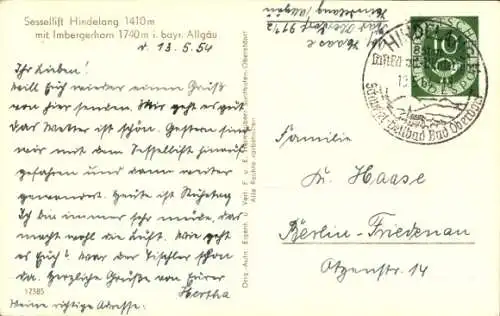 Sessellift Hindelang 1410 m
mit Imbergerhorn 1740 m i. bayr. Allgäu
d. 13.5.54
Ihr Lieben!
Will Euch wieder einen Gruß
von hier senden. Mir geht es gut
das Wetter ist schön. Gestern sind
wir mit dem Sessellift hinauf
gefahren und dann weiter
gewandert. Heute ist Ruhetag
Ich bin immer sehr müde, das
macht wohl die Luft. Wie geht
es Euch? War der Tischler schon
da. Herzliche Grüße von Eurer
Hertha
17385
Meine richtige Adresse.
Alle Rechte vorbehalten
Haase
HINDELANG
10
Bad Oberdorf
Familie
K. Haase
Berlin-Friedenau
Otzenstr. 14